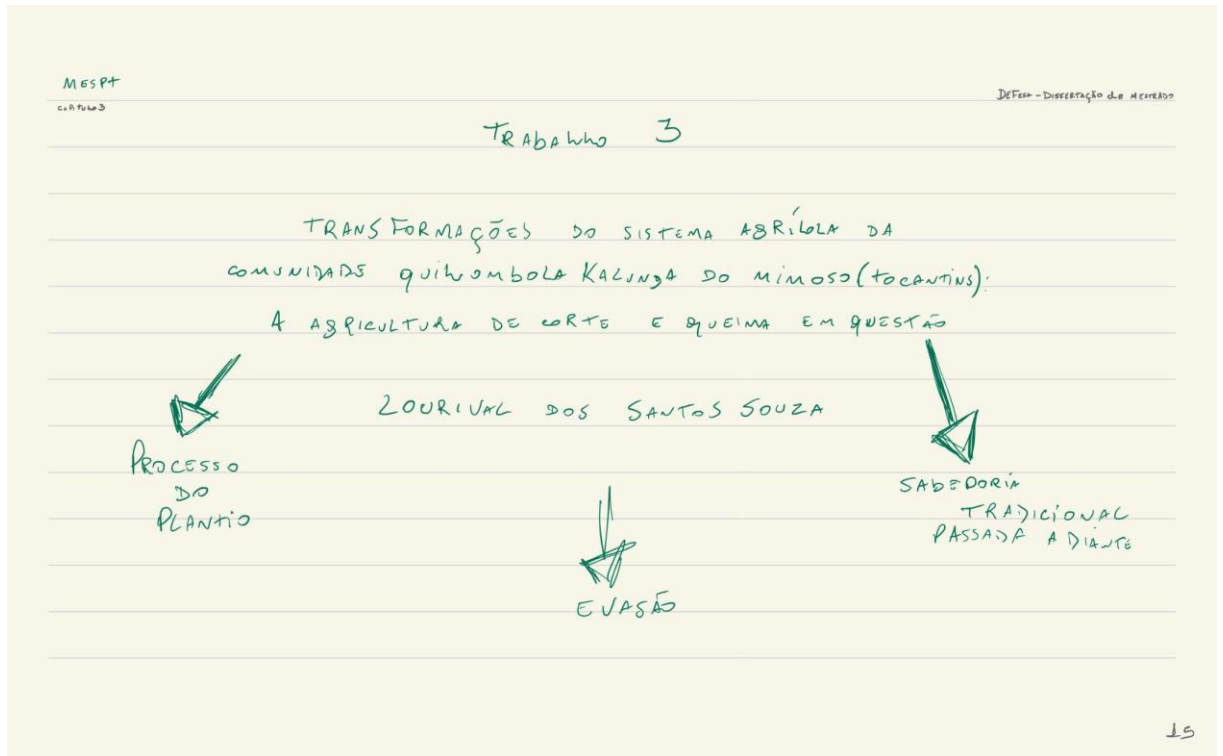 MESPT
CAPITULO 3
DEFESA - DISSERTAÇÃO de MESTRADO
TRABALHO 3
TRANSFORMAÇÕES DO SISTEMA AGRÍCOLA DA
COMUNIDADE QUILOMBOLA KALUNGA DO MIMOSO (TOCANTINS):
A AGRICULTURA DE CORTE E QUEIMA EM QUESTÃO
LOURIVAL DOS SANTOS SOUZA
PROCESSO
DO
PLANTIO
SABEDORIA
TRADICIONAL
PASSADA ADIANTE
EVASÃO
15